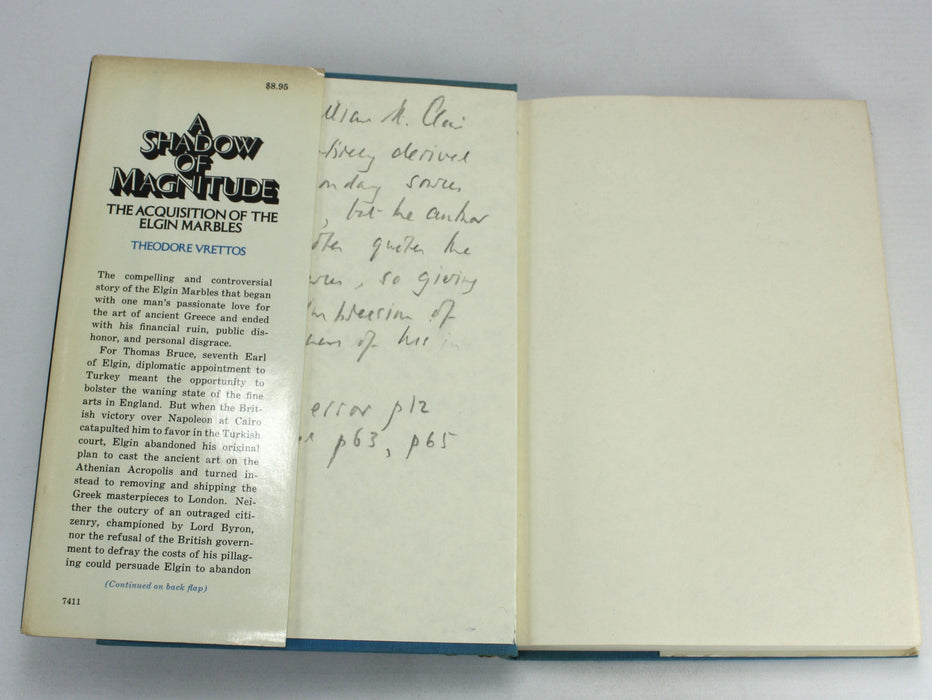 $8.95
A
SHADOW
OF
MAGNITUDE
THE ACQUISITION OF THE
ELGIN MARBLES
THEODORE VRETTOS
The compelling and controversial
story of the Elgin Marbles that began
with one man's passionate love for
the art of ancient Greece and ended
with his financial ruin, public dis-
honor, and personal disgrace.
For Thomas Bruce, seventh Earl
of Elgin, diplomatic appointment to
Turkey meant the opportunity to
bolster the waning state of the fine
arts in England. But when the Brit-
ish victory over Napoleon at Cairo
catapulted him to favor in the Turkish
court, Elgin abandoned his original
plan to cast the ancient art on the
Athenian Acropolis and turned in-
stead to removing and shipping the
Greek masterpieces to London. Nei-
ther the outcry of an outraged citi-
zenry, championed by Lord Byron,
nor the refusal of the British govern-
ment to defray the costs of his pillag-
ing could persuade Elgin to abandon
(Continued on back flap)
7411
derived
, but the author
quotes the
, so giving
of
of his in
error p12
p63, p65